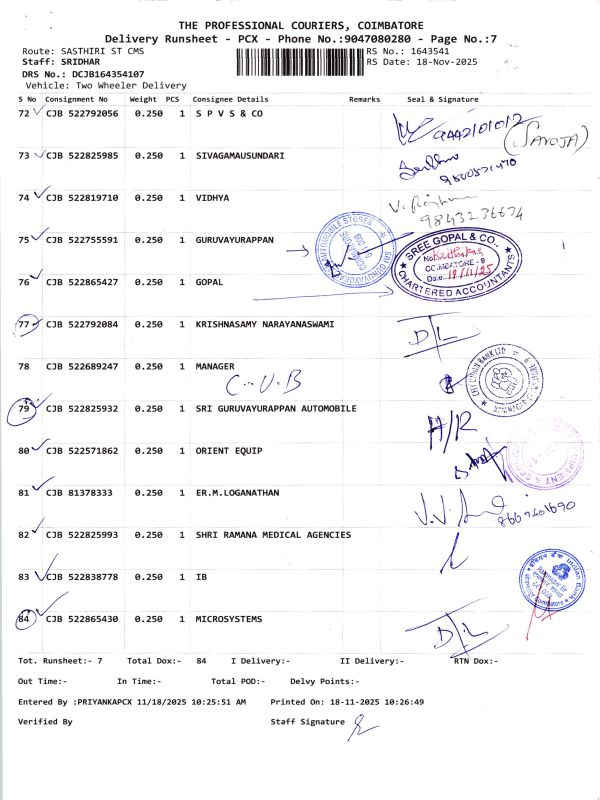 THE PROFESSIONAL COURIERS, COIMBATORE
Delivery Runsheet - PCX - Phone No.:9047080280 - Page No.:7
Route: SASTHIRI ST CMS RS No.: 1643541
Staff: SRIDHAR RS Date: 18-Nov-2025
DRS No.: DCJB164354107
Vehicle: Two Wheeler Delivery
S No Consignment No Weight PCS Consignee Details Remarks Seal & Signature
72 CJB 522792056 0.250 1 S P V S & CO
9442101012 (SAROJA)
73 CJB 522825985 0.250 1 SIVAGAMAUSUNDARI
74 CJB 522819710 0.250 1 VIDHYA
9843236674
75 CJB 522755591 0.250 1 GURUVAYURAPPAN
AUTOMOBILE STORES
SREE GOPAL & CO.,
No.
COIMBATORE - 9
Date 18/11/25
CHARTERED ACCOUNTANTS
76 CJB 522865427 0.250 1 GOPAL
77 CJB 522792084 0.250 1 KRISHNASAMY NARAYANASWAMI
D/L
78 CJB 522689247 0.250 1 MANAGER
C.U.B
CITY UNION BANK LTD
79 CJB 522825932 0.250 1 SRI GURUVAYURAPPAN AUTOMOBILE
H/R
80 CJB 522571862 0.250 1 ORIENT EQUIP
81 CJB 81378333 0.250 1 ER.M.LOGANATHAN
8667401690
82 CJB 522825993 0.250 1 SHRI RAMANA MEDICAL AGENCIES
83 CJB 522838778 0.250 1 IB
Indian Bank
84 CJB 522865430 0.250 1 MICROSYSTEMS
D/L
Tot. Runsheet:- 7 Total Dox:- 84 I Delivery:- II Delivery:- RTN Dox:-
Out Time:- In Time:- Total POD:- Delvy Points:-
Entered By :PRIYANKAPCX 11/18/2025 10:25:51 AM Printed On: 18-11-2025 10:26:49
Verified By Staff Signature